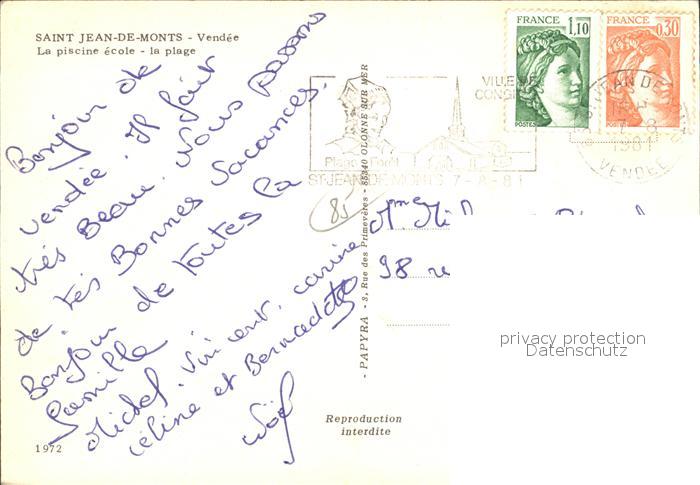 SAINT JEAN-DE-MONTS - Vendée
La piscine école - la plage
Bonjour de
vendée. Il fait
très Beau. Nous passons
de tès Bonnes Vacances.
Bonjour de toutes la
famille
Michel. Vincent. carine
céline et Bernadette
Noël
1972
Reproduction
interdite
- PAPYRA - 3, Rue des Primevères - 85340 OLONNE SUR MER
FRANCE
1,10
POSTES
FRANCE
0,30
POSTES
VILLE DE
Plage Forêt
ST-JEAN-DE-MONTS 7-8-81
1981
VENDEE
85
Mme
98
privacy protection
Datenschutz